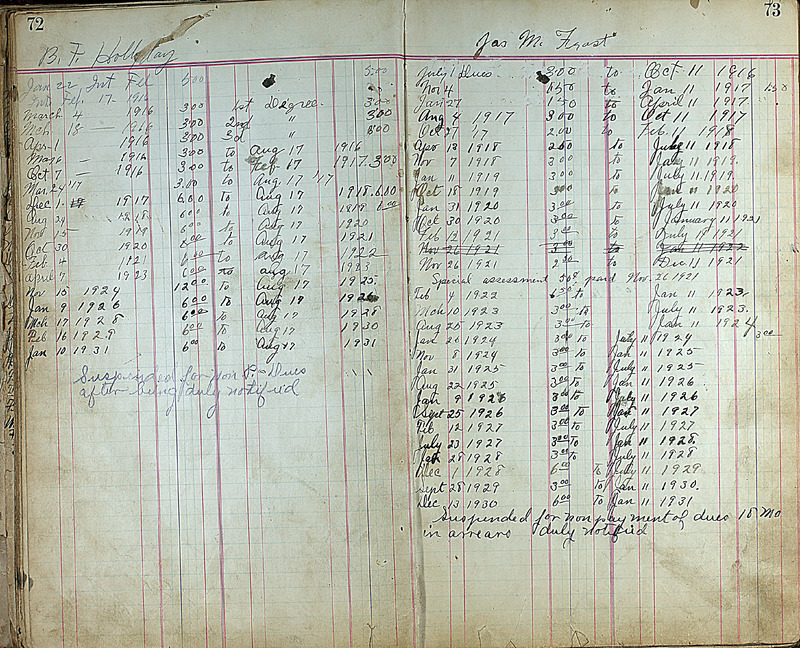 72
B. F. Holliday
Jan 22 Int Fee 5.00 5.00
Int. Feb. 17 - 1916
March 4 1916 3.00 1st Degree 3.00
Mch 18 — 1916 3.00 2nd " 3.00
Apr - 1 1916 3.00 3d " 3.00
May 6 — 1916 3.00 to Aug 17 1916
Oct 7 — 1916 3.00 to Feb 17 1917 3.00
Mar 24 '17 3.00 to Aug 17 '17
Dec 1 - 1917 6.00 to Aug 17 1918 6.00
Aug 24 1918 6 00 to Aug 17 1919 6 00
Nov 15 — 1919 6 00 to Aug 17 1920
Oct 30 1920 6 00 to Aug 17 1921
Feb 4 1921 6 00 to Aug 17 1922
April 7 1923 6 00 to Aug 17 1923
Nov 15 1924 12 00 to Aug 17 1925
Jan 9 1926 6 00 to Aug 17 1926
Mch 17 1928 6 00 to Aug 17 1928
Feb 16 1929 6 00 to Aug 17 1930
Jan 10 1931 6 00 to Aug 17 1931
Suspended for non P. Dues
after being duly notified
73
Jas M. Frost
July 1 Dues 3.00 to Oct 11 1916
Nov 4 1 50 to Jan 11 1917 1 50
Jan 27 1 50 to April 11 1917
Aug 4 1917 3 00 to Oct 11 1917
Oct 27 '17 2.00 to Feb. 11 1918
Apr 13 1918 2 00 to July 11 1918
Nov 7 1918 3 00 to 11 1919.
Jan 11 1919 3 00 to July 11 1919.
Oct 18 1919 3 00 to Jan 11 1920
Jan 31 1920 3 00 to July 11 1920
Oct 30 1920 3 00 to January 11 1921
Feb 12 1921 3 00 to July 11 1921
Nov 26 1921 3 00 to Jan 11 1922
Nov 26 1921 2 to Dec 11 1921
Special assessment 50¢ paid Nov. 26 1921
Feb 4 1922 6 50 to Jan 11 1923
Mch 10 1923 3 00 to July 11 1923.
Aug 25 1923 3 00 to Jan 11 1924 3 00
Jan 26 1924 3 00 to July 11 1924
Nov 8 1924 3 00 to Jan 11 1925
Jan 31 1925 3 00 to July 11 1925
Aug 22 1925 3 00 to Jan 11 1926
Jan 9 1926 3 00 to July 11 1926
Sept 25 1926 3 00 to Jan 11 1927
Feb 12 1927 3 00 to July 11 1927
July 23 1927 3 00 to Jan 11 1928
Jan 28 1928 3 00 to July 11 1928
Dec 1 1928 6 00 to July 11 1929
Sept 28 1929 3 00 to Jan 11 1930
Dec 13 1930 6 00 to Jan 11 1931
Suspended for non payment of dues 18 Mo
in arrears duly notified